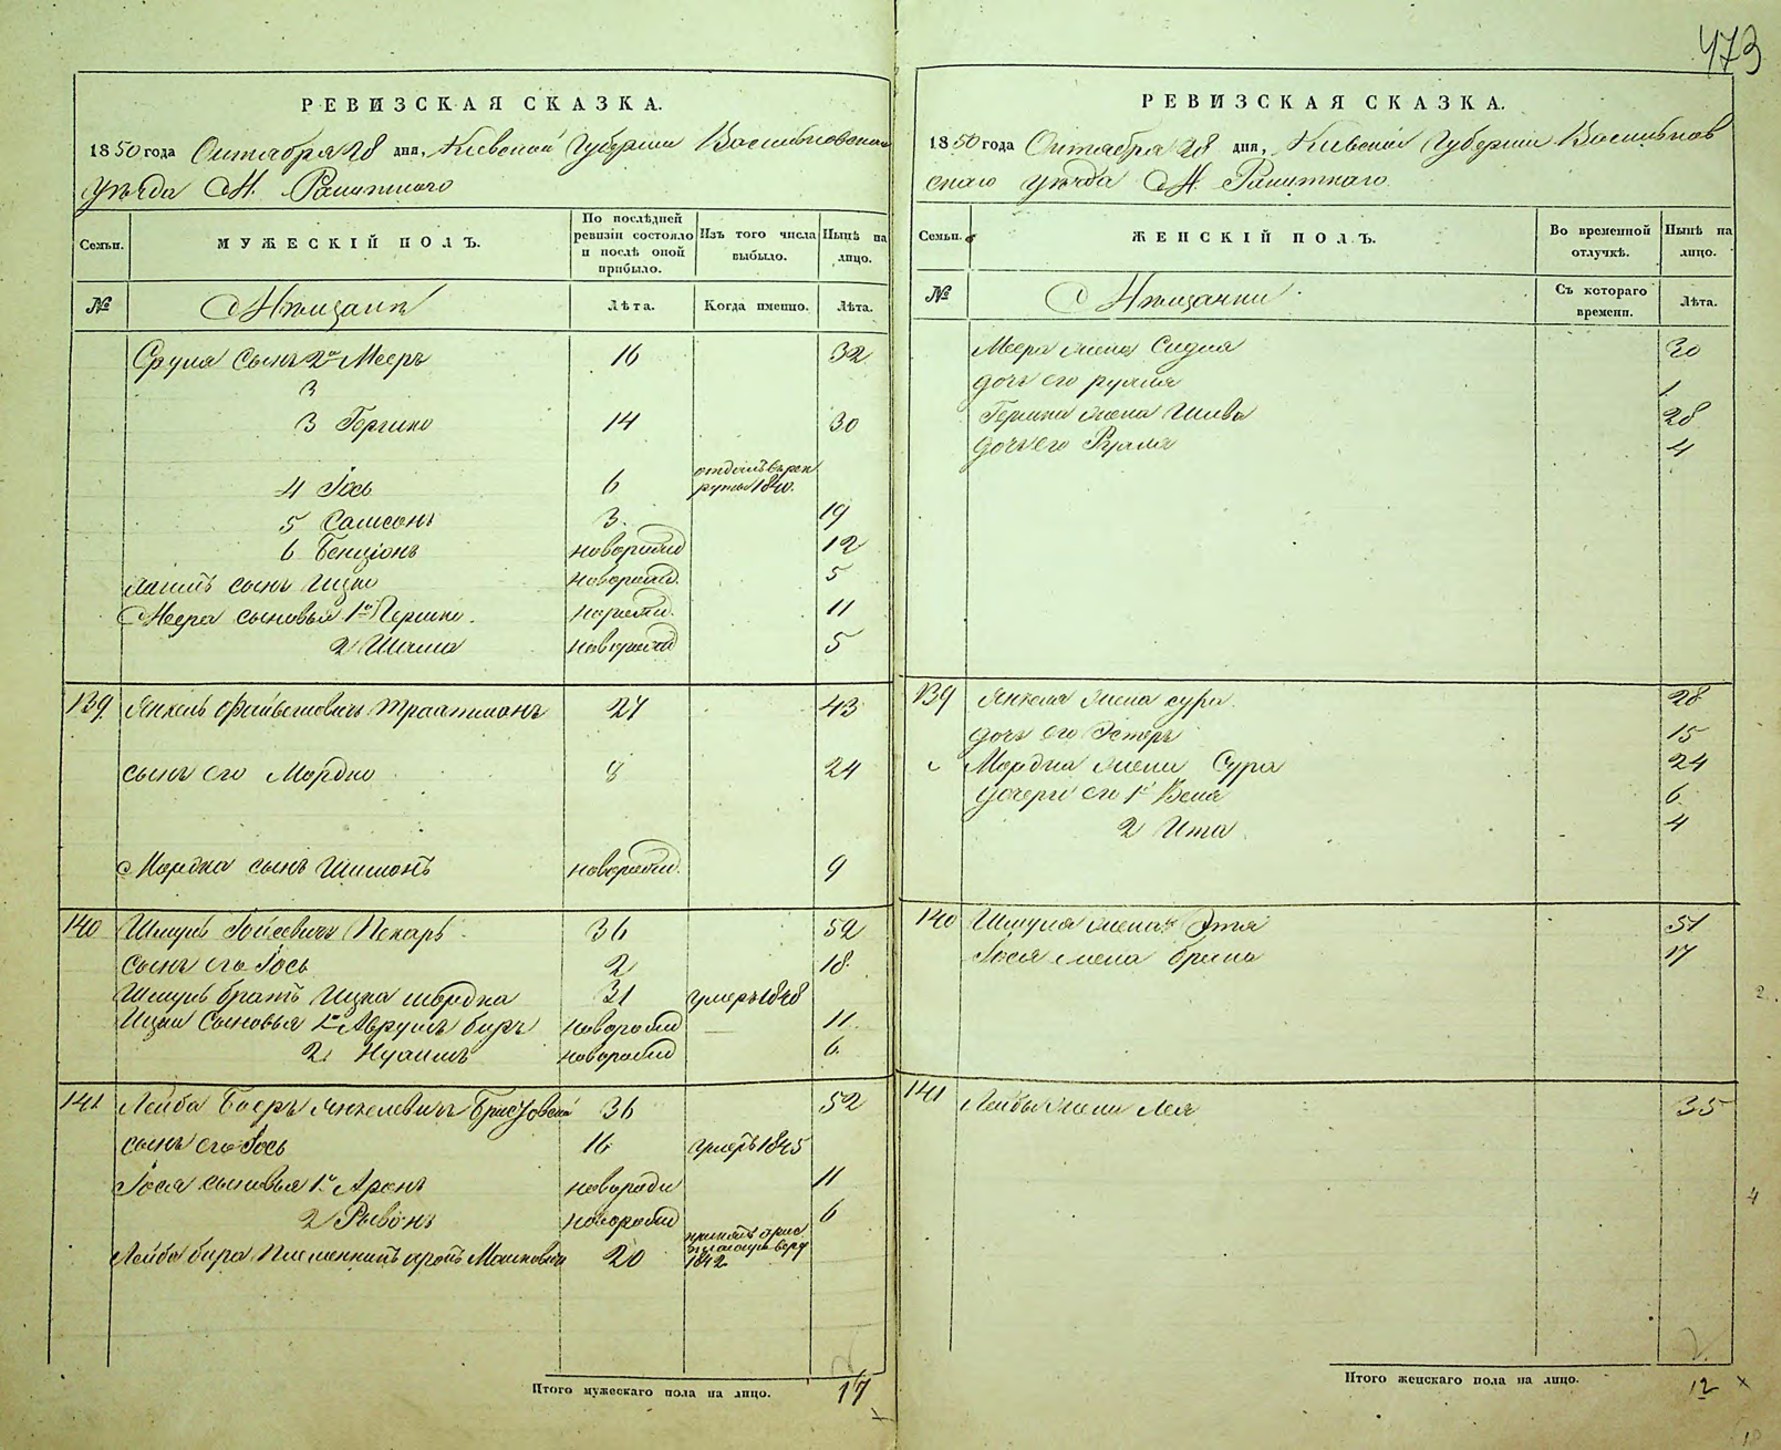 473
РЕВИЗСКАЯ СКАЗКА.
1850 года Октября 28 дня, Киевской Губернии Васильковскаго
уѣзда М. Ракитнаго
Семьи.
МУЖЕСКІЙ ПОЛЪ.
По послѣдней ревизіи состояло и послѣ оной прибыло.
Изъ того числа выбыло.
Нынѣ на лицо.
№
Мѣщане
Лѣта.
Когда именно.
Лѣта.
Сруля Сынъ 2й Мееръ 16 32
3
3 Гершко 14 30
4 Іось 6 отданъ въ рек руты 1840.
5 Самсонъ 3. 19
6 Бенціонъ новорожд 12
сынъ Ицко новорожд. 5
Меера сыновья 1й Гершко. 11
2 новорожд 5
139. Янкель Файвишовичъ Траахтманъ 27 43
сынъ его Мордко 8 24
Мордка сынъ Шимонъ новорожд. 9
140 Шмуль Іойсевичъ Пекарь 36 52
Сынъ его Іось 2 18.
Шмуля братъ Ицка 31 умеръ 1848
Ицки Сыновья 1й Аврумъ беръ новорожд 11.
2. новорожд 6.
141 Лейба Беръ Янкелевичъ 36 52
сынъ его Іось 16 умеръ 1845
Іося сыновья 1й Аронъ новорожд 11
2 новорожд 6
Лейба бера племянникъ Мошковичъ 20 1842
Итого мужескаго пола на лицо. 17
РЕВИЗСКАЯ СКАЗКА.
1850 года Октября 28 дня, Киевской Губерніи Васильков
скаго уѣзда М. Ракитнаго
Семьи.
ЖЕНСКІЙ ПОЛЪ.
Во временной отлучкѣ.
Нынѣ на лицо.
№
Мѣщанки
Съ котораго времени.
Лѣта.
Меера жена 30
дочь его рухля 1
Гершка жена Шива 28
дочь его 4
139 Янкеля жена сура. 28
дочь его Эстеръ 15
Мордка жена Сура 24
дочери его 1я Бейля 6.
2 Ита 4
140 Шмуля жена Этя 51
Іося жена 17
141 Лейбы жена Лея 35
Итого женскаго пола на лицо. 12